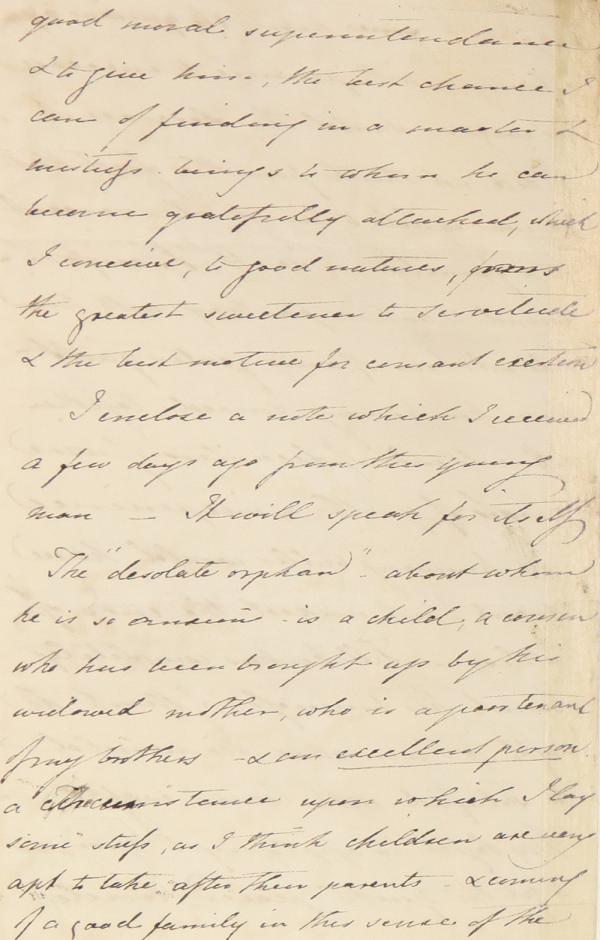 good moral superintendance
& to give him, the best chance I
can of finding in a master &
mistress beings to whom he can
become gratefully attached, which
I conceive, to good natures, forms
the greatest sweetener to servitude
& the best motive for constant exertion
I enclose a note which I received
a few days ago from this young
man — It will speak for itself
The "desolate orphan" - about whom
he is so anxious - is a child, a cousin
who has been brought up by his
widowed mother, who is a poor tenant
of my brothers - & an excellent person.
a circumstance upon which I lay
some stress, as I think children are very
apt to take after their parents - & coming
of a good family in this sense of the